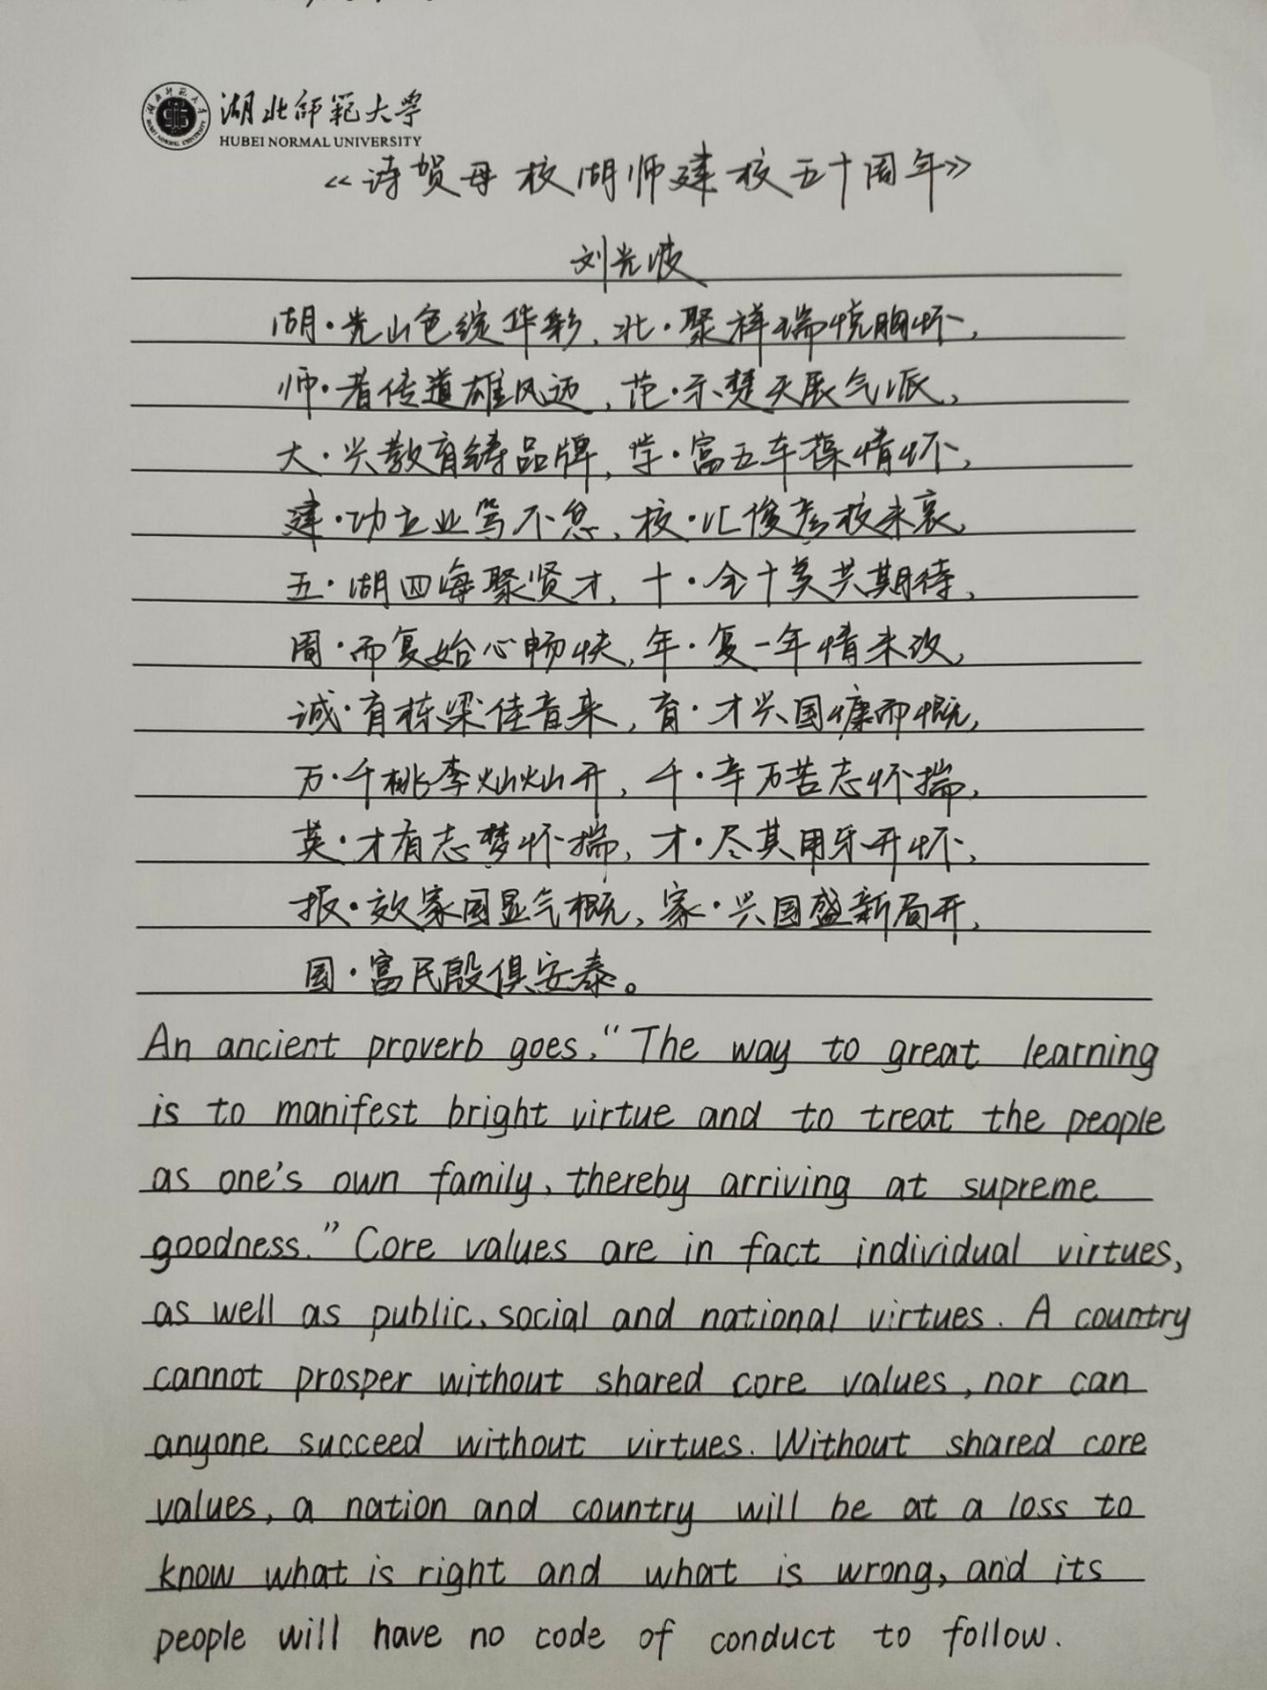 湖北师范大学
HUBEI NORMAL UNIVERSITY
《诗贺母校湖师建校五十周年》
刘光波
湖·光山色绽华彩,北·聚祥瑞悦胸怀,
师·者传道雄风迈,范·示楚天展气派,
大·兴教育铸品牌,学·富五车葆情怀,
建·功立业笃不怠,校·汇俊彦校未衰,
五·湖四海聚贤才,十·全十美共期待,
周·而复始心畅快,年·复一年情未改,
诚·育栋梁佳音来,育·才兴国慷而慨,
万·千桃李灿灿开,千·辛万苦志怀揣,
英·才有志梦怀揣,才·尽其用乐开怀,
报·效家国显气概,家·兴国盛新局开,
国·富民殷俱安泰。
An ancient proverb goes, "The way to great learning
is to manifest bright virtue and to treat the people
as one's own family, thereby arriving at supreme
goodness." Core values are in fact individual virtues,
as well as public, social and national virtues. A country
cannot prosper without shared core values, nor can
anyone succeed without virtues. Without shared core
values, a nation and country will be at a loss to
know what is right and what is wrong, and its
people will have no code of conduct to follow.